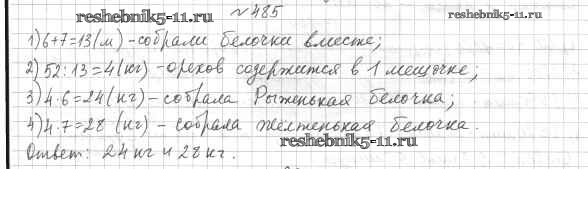 reshebnik5-11.ru №485 reshebnik5-11.ru
1) 6+7=13(м) - собрали белочки вместе;
2) 52:13=4(кг) - орехов содержится в 1 мешочке;
3) 4·6=24(кг) - собрала Рыженькая белочка;
4) 4·7=28 (кг) - собрала желтенькая белочка.
reshebnik5-11.ru
Ответ: 24 кг и 28 кг.